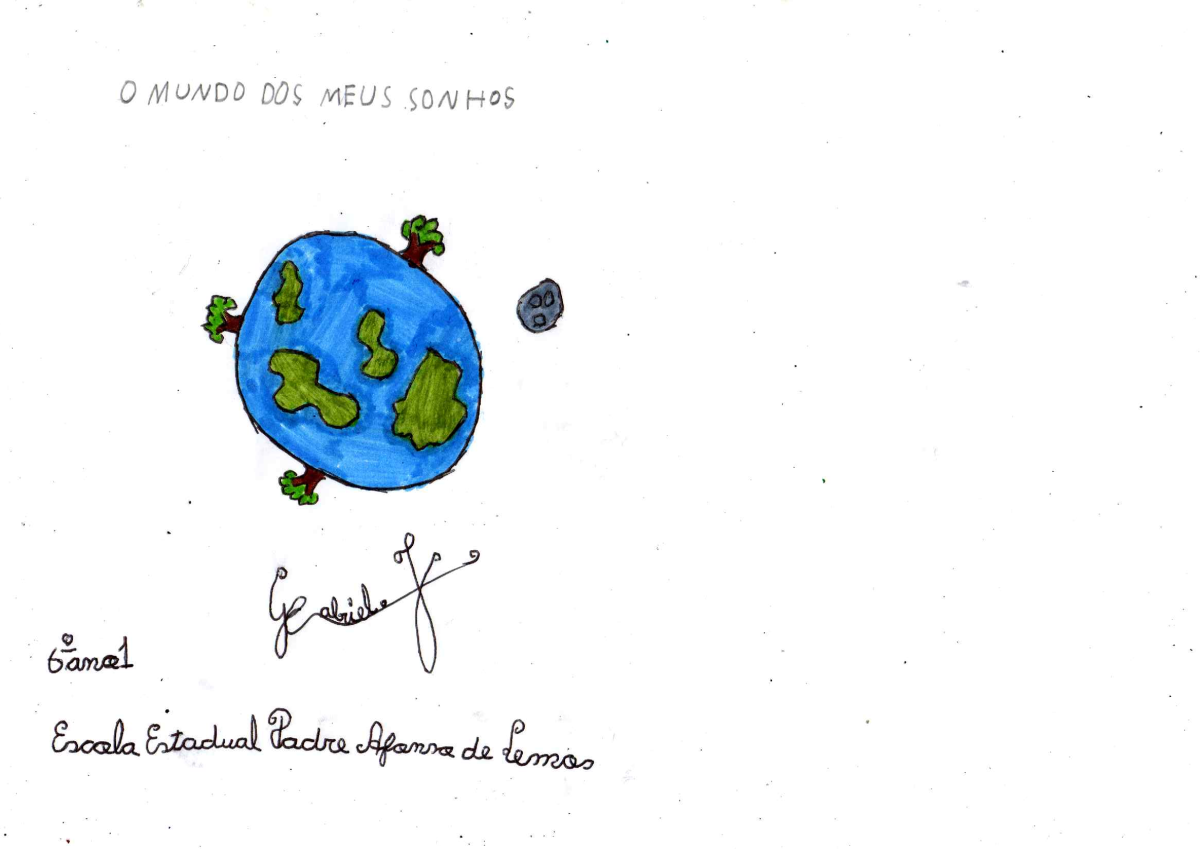 O MUNDO DOS MEUS SONHOS
Gabriel
6º ano 1
Escola Estadual Padre Afonso de Lemos